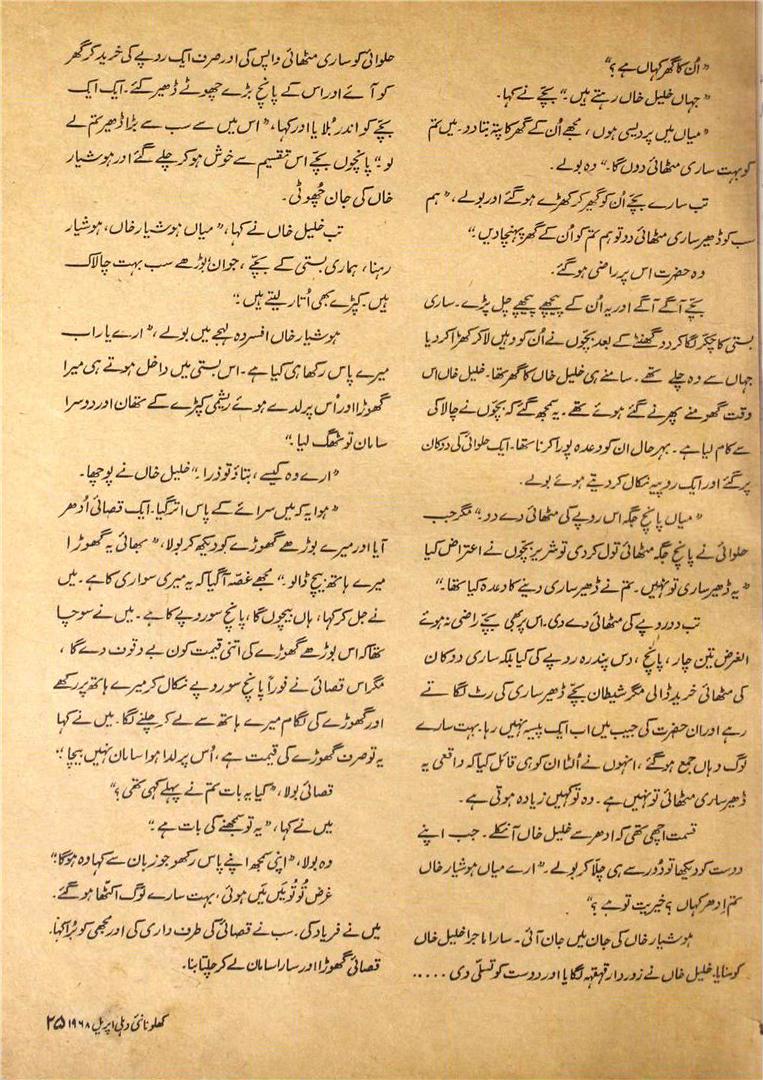 "اُن کا گھر کہاں ہے؟"
"جہاں خلیل خاں رہتے ہیں۔" بچّے نے کہا۔
"میاں میں پردیسی ہوں، مجھے اُن کے گھر کا پتہ بتا دو۔ میں تم
کو بہت ساری مٹھائی دوں گا۔" وہ بولے۔
تب سارے بچّے اُن کو گھیر کر کھڑے ہو گئے اور بولے، "ہم
سب کو ڈھیر ساری مٹھائی دو تو ہم تم کو اُن کے گھر پہنچا دیں۔"
وہ حضرت اس پر راضی ہو گئے۔
بچّے آگے آگے اور یہ اُن کے پیچھے پیچھے چل پڑے۔ ساری
بستی کا چکّر لگا کر دو گھنٹے کے بعد بچّوں نے اُن کو وہیں لا کر کھڑا کر دیا
جہاں سے وہ چلے تھے۔ سامنے ہی خلیل خاں کا گھر تھا۔ خلیل خاں اس
وقت گھومنے پھرنے گئے ہوئے تھے۔ یہ سمجھ گئے کہ بچّوں نے چالاکی
سے کام لیا ہے۔ بہرحال ان کو وعدہ پورا کرنا تھا۔ ایک حلوائی کی دوکان
پر گئے اور ایک روپیہ نکال کر دیتے ہوئے بولے۔
"میاں پانچ جگہ اس روپے کی مٹھائی دے دو۔" مگر جب
حلوائی نے پانچ جگہ مٹھائی تول کر دی تو شریر بچّوں نے اعتراض کیا
"یہ ڈھیر ساری تو نہیں۔ تم نے ڈھیر ساری دینے کا وعدہ کیا تھا۔"
تب دو روپے کی مٹھائی دے دی۔ اس پر بھی بچّے راضی نہ ہوئے
الغرض تین چار، پانچ، دس پندرہ روپے کی کیا بلکہ ساری دوکان
کی مٹھائی خرید ڈالی مگر شیطان بچّے ڈھیر ساری کی رٹ لگاتے
رہے اور ان حضرت کی جیب میں اب ایک پیسہ نہیں رہا۔ بہت سارے
لوگ وہاں جمع ہو گئے، انہوں نے اُلٹا ان کو ہی قائل کیا کہ واقعی یہ
ڈھیر ساری مٹھائی تو نہیں ہے۔ وہ تو کہیں زیادہ ہوتی ہے۔
قسمت اچھی تھی کہ ادھر سے خلیل خاں آ نکلے۔ جب اپنے
دوست کو دیکھا تو دُور سے ہی چلّا کر بولے۔ "ارے میاں ہوشیار خاں
تم اِدھر کہاں؟ خیریت تو ہے؟"
ہوشیار خاں کی جان میں جان آئی۔ سارا ماجرا خلیل خاں
کو سنایا۔ خلیل خاں نے زوردار قہقہہ لگایا اور دوست کو تسلّی دی .....
حلوائی کو ساری مٹھائی واپس کی اور صرف ایک روپے کی خرید کر گھر
کو آئے اور اس کے پانچ بڑے چھوٹے ڈھیر کئے۔ ایک ایک
بچّے کو اندر بُلایا اور کہا، "اس میں سے سب سے بڑا ڈھیر تم لے
لو۔" پانچوں بچّے اس تقسیم سے خوش ہو کر چلے گئے اور ہوشیار
خاں کی جان چھُوٹی۔
تب خلیل خاں نے کہا، "میاں ہوشیار خاں، ہوشیار
رہنا، ہماری بستی کے بچّے، جوان بُوڑھے سب بہت چالاک
ہیں۔ کپڑے بھی اُتار لیتے ہیں۔"
ہوشیار خاں افسردہ لہجے میں بولے، "ارے یار اب
میرے پاس رکھا ہی کیا ہے۔ اس بستی میں داخل ہوتے ہی میرا
گھوڑا اور اُس پر لدے ہوئے ریشمی کپڑے کے تھان اور دوسرا
سامان تو ٹھگ لیا۔"
"ارے وہ کیسے، بتاؤ تو ذرا۔" خلیل خاں نے پوچھا۔
"ہوا یہ کہ میں سرائے کے پاس اتر گیا۔ ایک قصائی اُدھر
آیا اور میرے بوڑھے گھوڑے کو دیکھ کر بولا، "بھائی یہ گھوڑا
میرے ہاتھ بیچ ڈالو۔" مجھے غصّہ آ گیا کہ یہ میری سواری کا ہے۔ میں
نے جل کر کہا، ہاں بیچوں گا، پانچ سو روپے کا ہے۔ میں نے سوچا
تھا کہ اس بوڑھے گھوڑے کی اتنی قیمت کون بے وقوف دے گا،
مگر اس قصائی نے فوراً پانچ سو روپے نکال کر میرے ہاتھ پر رکھے
اور گھوڑے کی لگام میرے ہاتھ سے لے کر چلنے لگا۔ میں نے کہا
یہ تو صرف گھوڑے کی قیمت ہے، اُس پر لدا ہوا سامان نہیں بیچا۔"
قصائی بولا، "کیا یہ بات تم نے پہلے کہی تھی؟"
میں نے کہا، "یہ تو سمجھنے کی بات ہے۔"
وہ بولا، "اپنی سمجھ اپنے پاس رکھو جو زبان سے کہا وہ ہوگا۔"
غرض تُو تُو مَیں مَیں ہوئی، بہت سارے لوگ اکٹھا ہو گئے۔
میں نے فریاد کی۔ سب نے قصائی کی طرف داری کی اور مجھی کو بُرا کہا۔
قصائی گھوڑا اور سارا سامان لے کر چلتا بنا۔
کھلونا نئی دہلی اپریل ۱۹۶۸ ۲۵